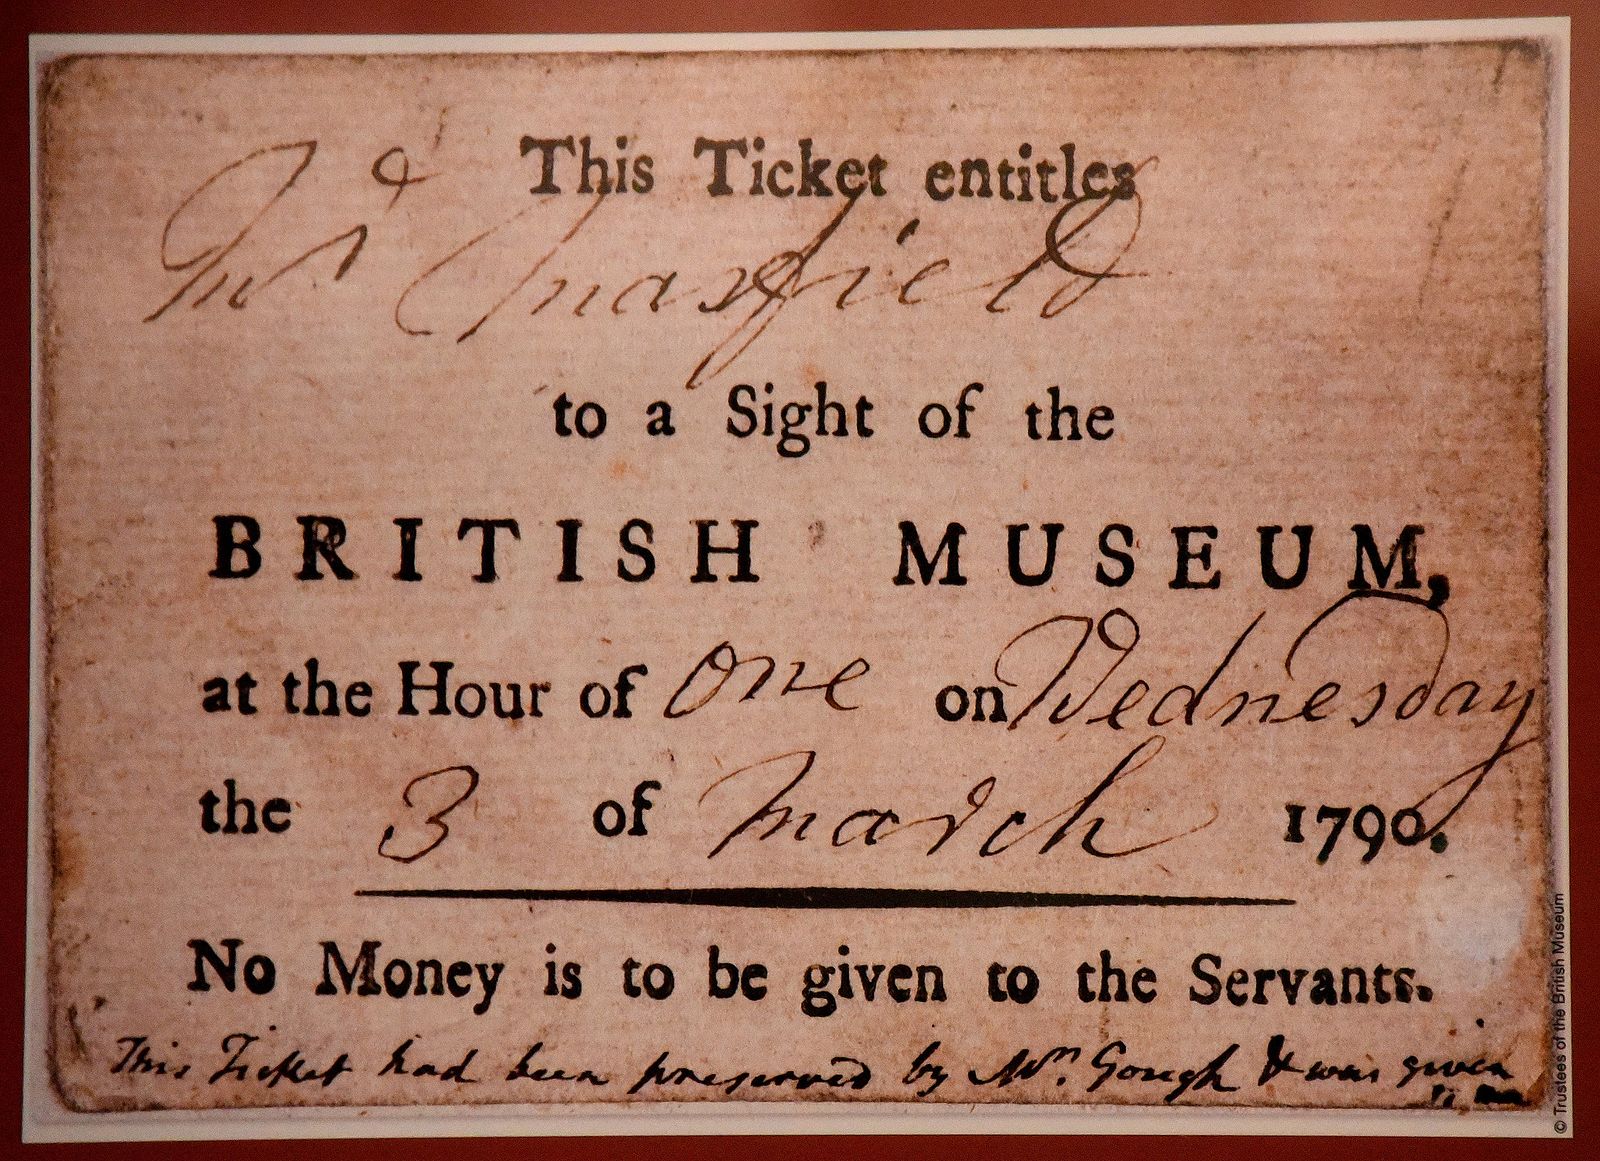 This Ticket entitles
Mr Maxfield
to a Sight of the
BRITISH MUSEUM,
at the Hour of One on Wednesday
the 3 of March 1790.
No Money is to be given to the Servants.
This Ticket had been preserved by Mr. Gough & was given
© Trustees of the British Museum